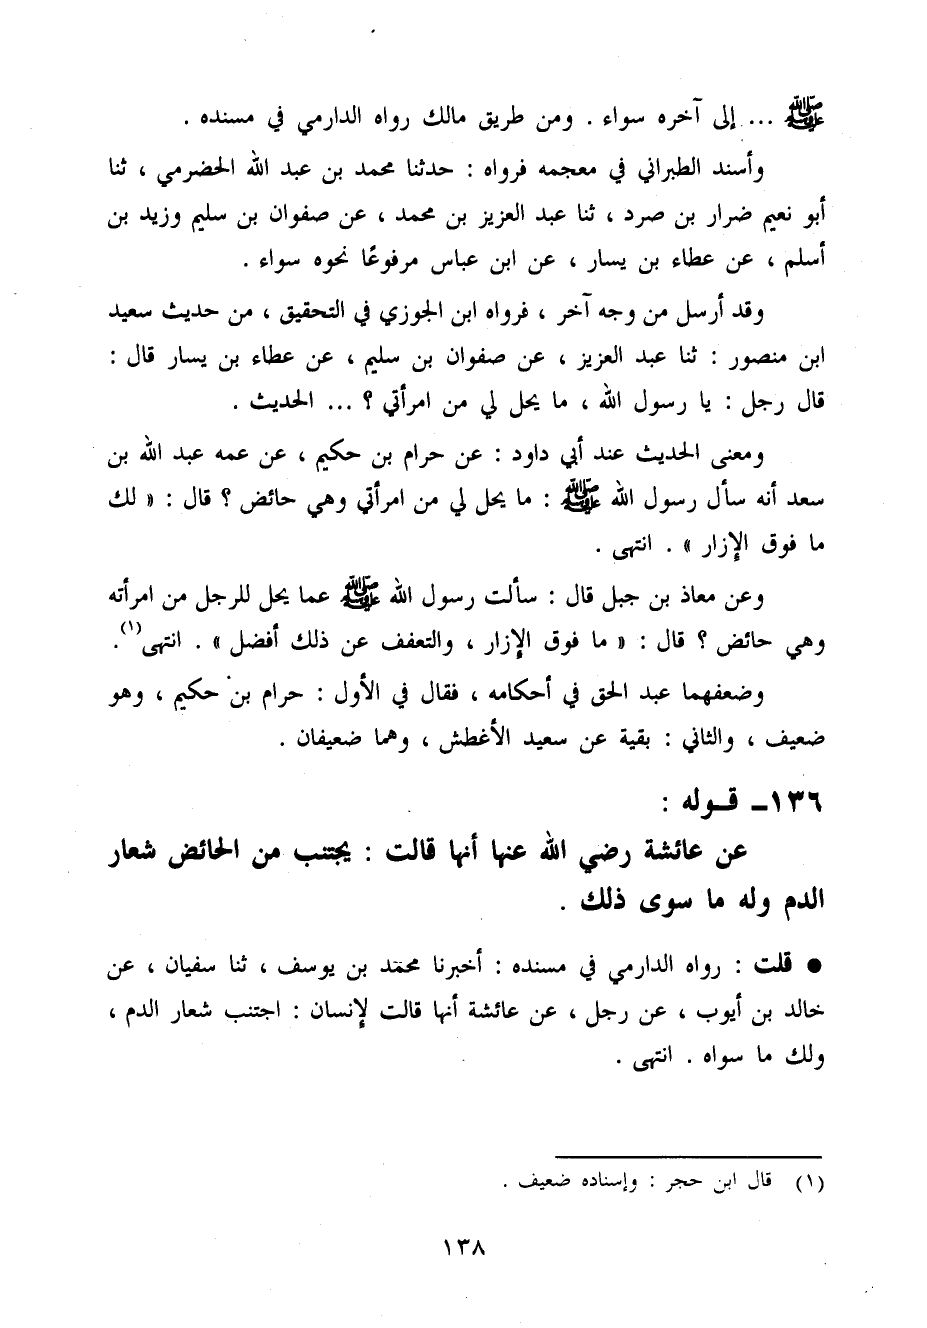 ﷺ ... إلى آخره سواء . ومن طريق مالك رواه الدارمي في مسنده .
وأسند الطبراني في معجمه فرواه : حدثنا محمد بن عبد الله الحضرمي ، ثنا
أبو نعيم ضرار بن صرد ، ثنا عبد العزيز بن محمد ، عن صفوان بن سليم وزيد بن
أسلم ، عن عطاء بن يسار ، عن ابن عباس مرفوعًا نحوه سواء .
وقد أرسل من وجه آخر ، فرواه ابن الجوزي في التحقيق ، من حديث سعيد
ابن منصور : ثنا عبد العزيز ، عن صفوان بن سليم ، عن عطاء بن يسار قال :
قال رجل : يا رسول الله ، ما يحل لي من امرأتي ؟ ... الحديث .
ومعنى الحديث عند أبي داود : عن حرام بن حكيم ، عن عمه عبد الله بن
سعد أنه سأل رسول الله ﷺ : ما يحل لي من امرأتي وهي حائض ؟ قال : « لك
ما فوق الإزار » . انتهى .
وعن معاذ بن جبل قال : سألت رسول الله ﷺ عما يحل للرجل من امرأته
وهي حائض ؟ قال : « ما فوق الإزار ، والتعفف عن ذلك أفضل » . انتهى(١).
وضعفهما عبد الحق في أحكامه ، فقال في الأول : حرام بن حكيم ، وهو
ضعيف ، والثاني : بقية عن سعيد الأغطش ، وهما ضعيفان .
١٣٦ـ قـولـه :
عن عائشة رضي الله عنها أنها قالت : يجتنب من الحائض شعار
الدم وله ما سوى ذلك .
● قلت : رواه الدارمي في مسنده : أخبرنا محمد بن يوسف ، ثنا سفيان ، عن
خالد بن أيوب ، عن رجل ، عن عائشة أنها قالت لإنسان : اجتنب شعار الدم ،
ولك ما سواه . انتهى .
(١) قال ابن حجر : وإسناده ضعيف .
١٣٨